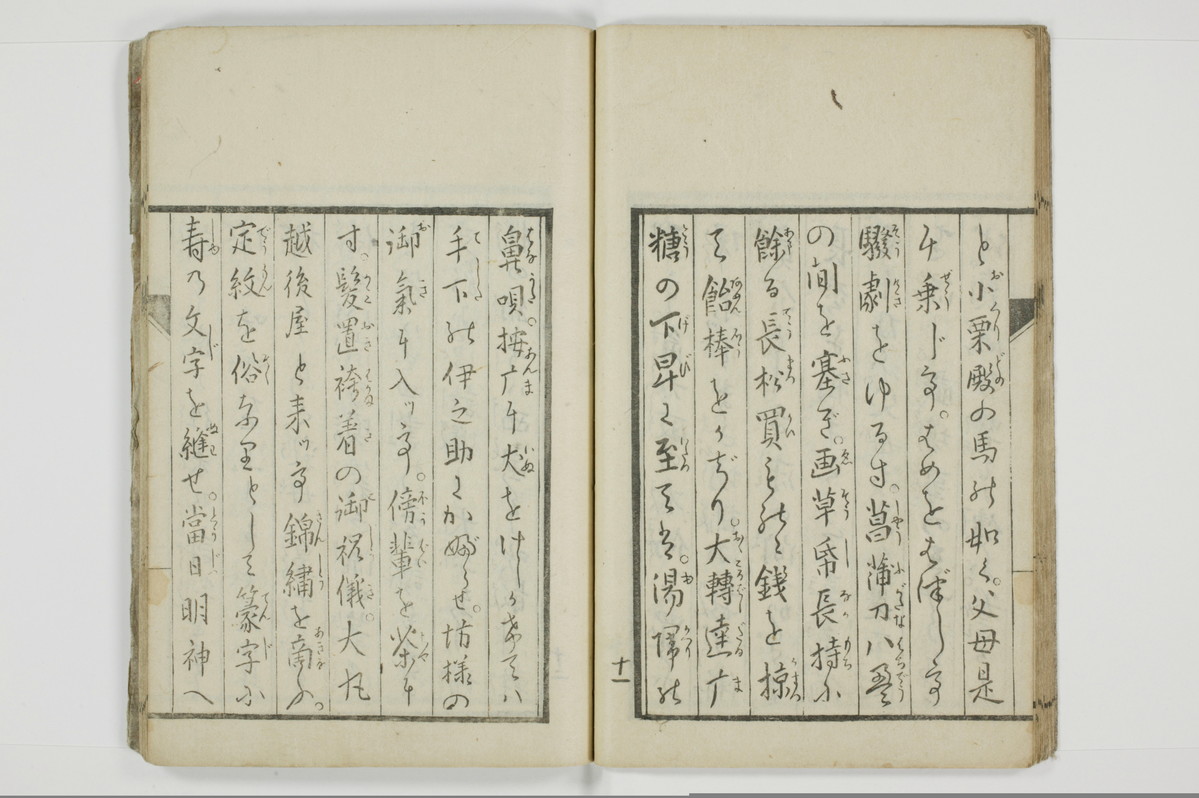 と小栗殿の馬の如く。父母是
に乗じて。はめをはづして
騒劇をゆるす。菖蒲刀ハ
の間を塞ぎ。画草帋長持に
餘る長松買ものゝ銭を掠
て飴棒をかぢり。大轉達广
糖の下卑に至ては。湯帰の
十一
鼻唄。按广に犬をけしかけてハ
手下の伊之助にかぶらせ。坊様の
御氣に入ッて。傍輩を柴に
す。髪置袴着の御祝儀。大丸
越後屋と来ッて錦繍を商ふ。
定紋を俗なりとして篆字に
寿の文字を縫せ。當日明神へ